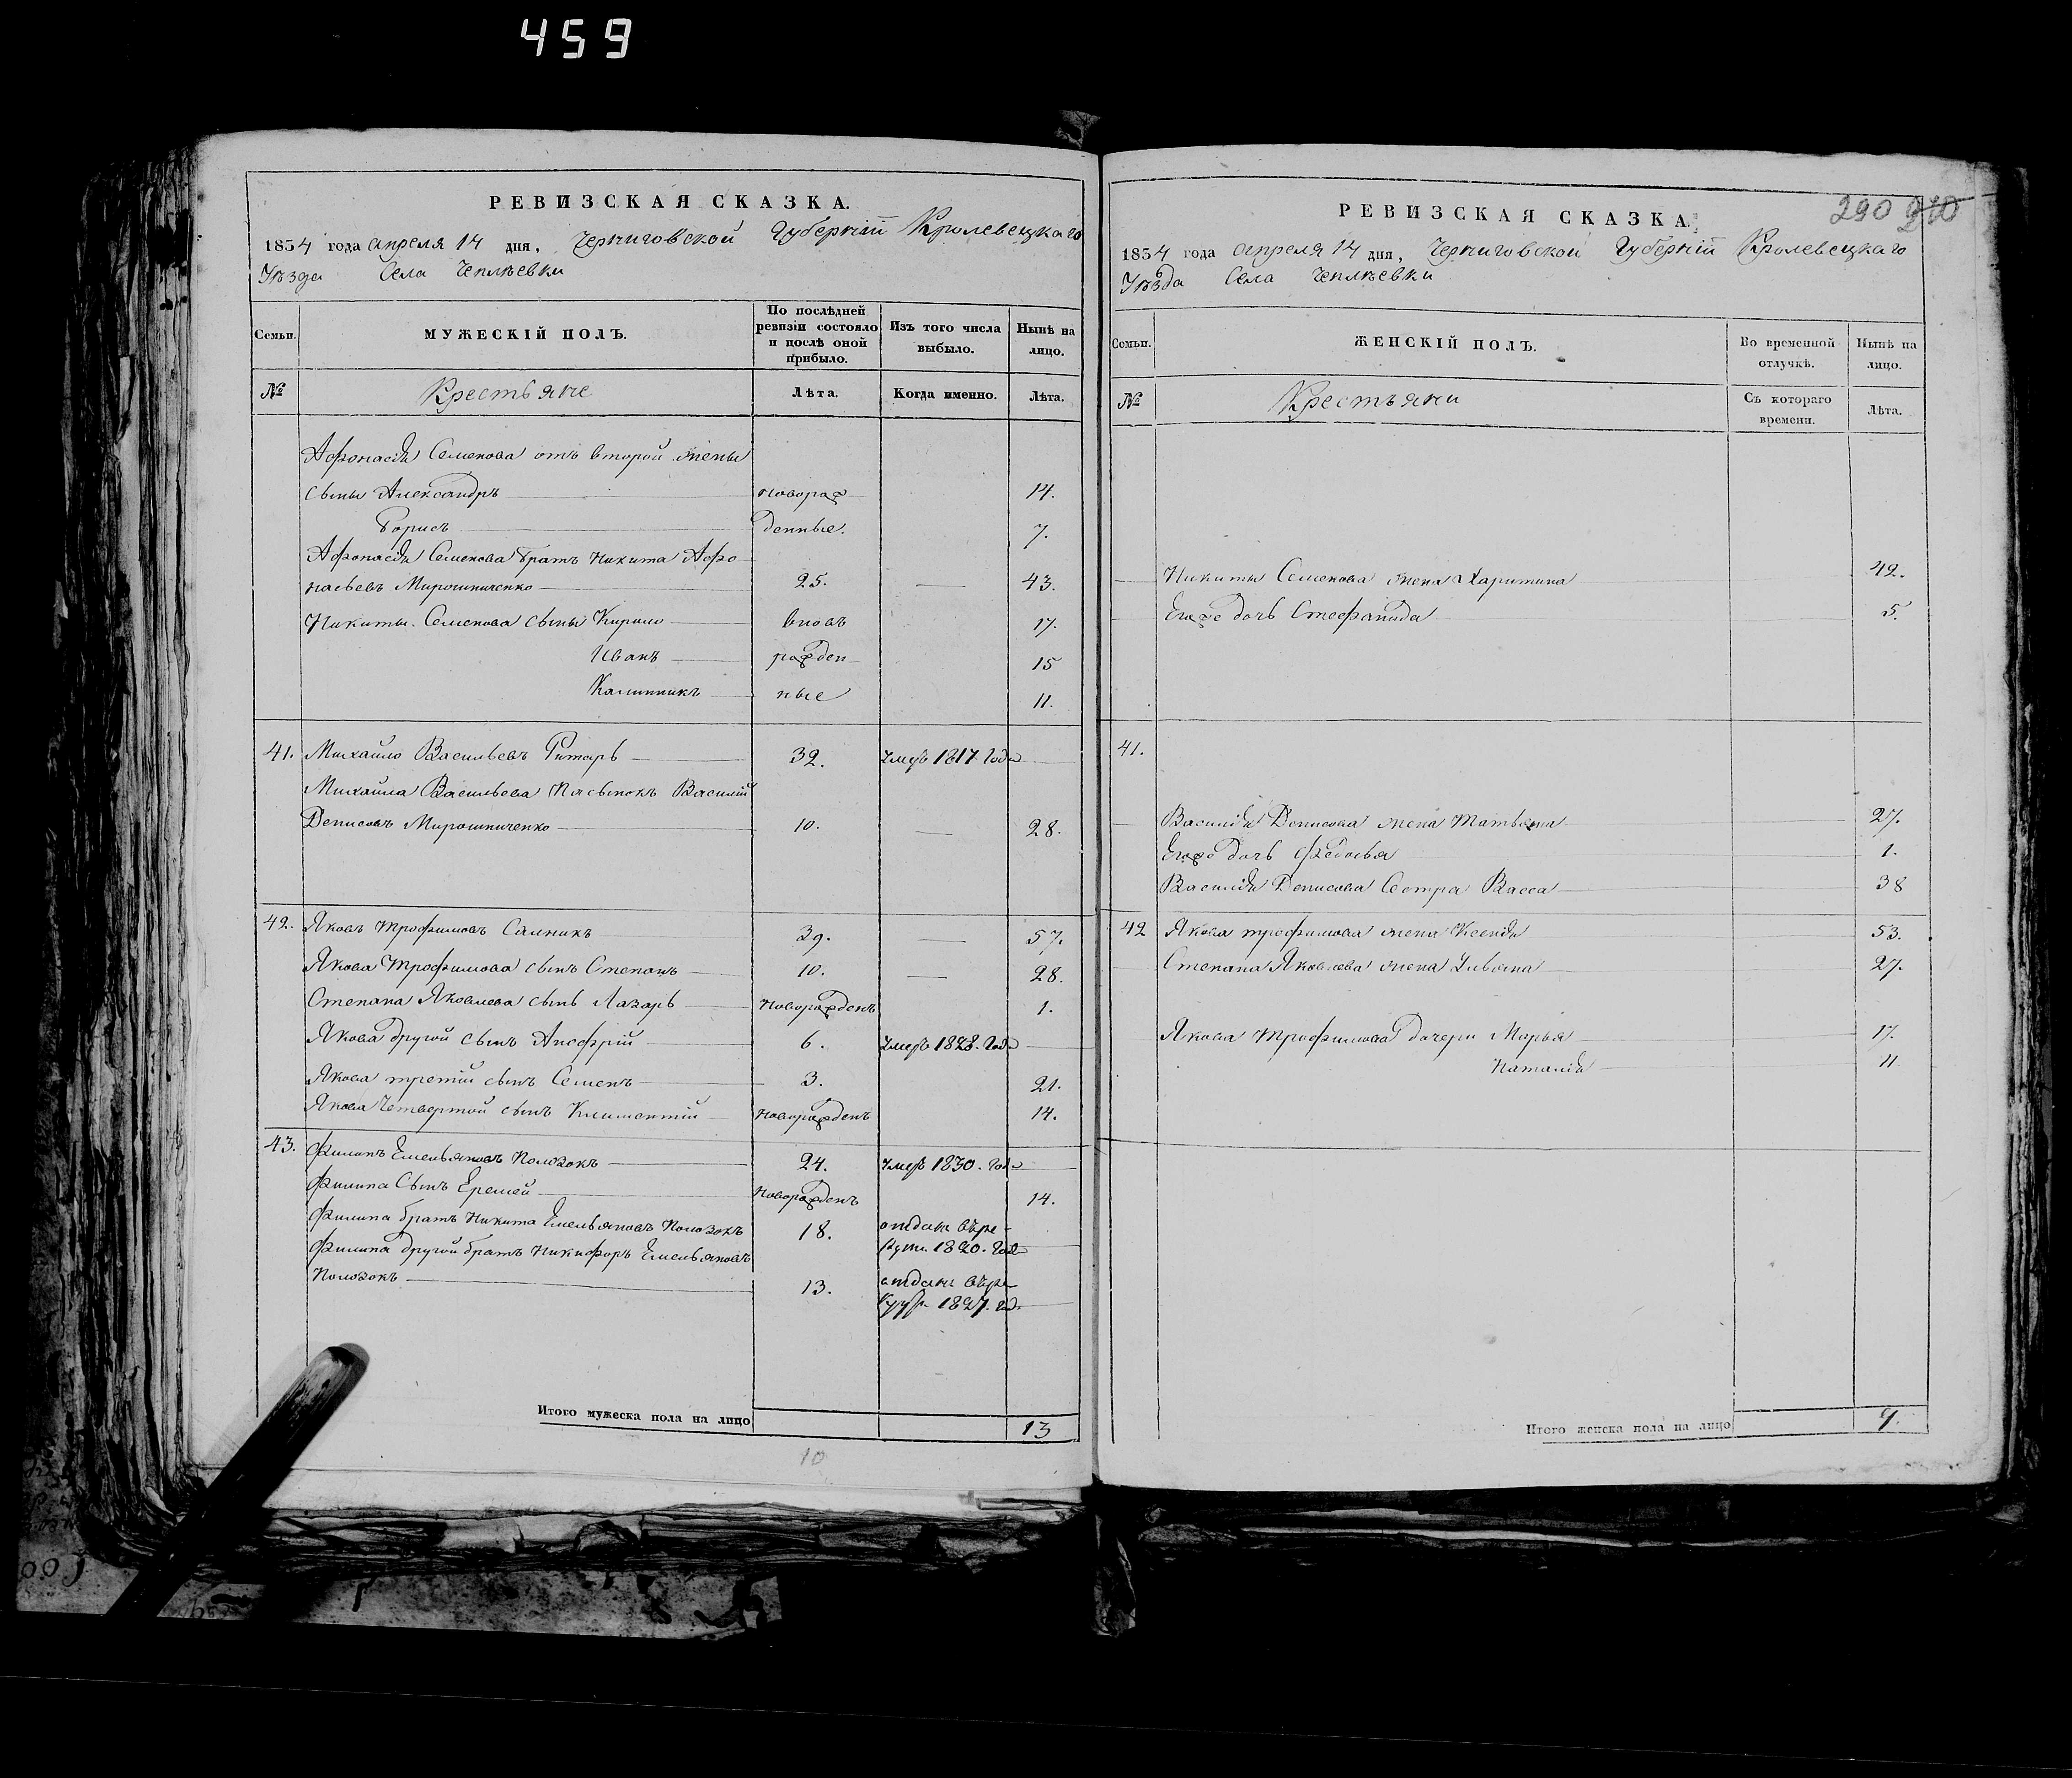 459
РЕВИЗСКАЯ СКАЗКА.
1834 года апреля 14 дня, Черниговской Губерніи Кролевецкаго
Уѣзда Села Чеплѣевки
Семьи.
МУЖЕСКІЙ ПОЛЪ.
По послѣдней ревизіи состояло и послѣ оной прибыло.
Изъ того числа выбыло.
Нынѣ на лицо.
№
Крестьяне
Лѣта.
Когда именно.
Лѣта.
Афонасія Семенова отъ второй жены
сыны Александръ новорож 14.
Борисъ денные. 7.
Афонасія Семенова братъ Никита Афо
насьевъ Мирошниченко 25. 43.
Никиты Семенова сыны Кирило вновь 17.
Иванъ рожден 15
Калинникъ ные 11.
41. Михайло Васильевъ Ритарь 32. Умеръ 1817 года
Михайла Васильева Пасынокъ Василій
Денисовъ Мирошниченко 10. 28.
42. Яковъ Трофимовъ Салникъ 39. 57.
Якова Трофимова сынъ Степанъ 10. 28.
Степана Яковлева сынъ Лазарь Новорожденъ 1.
Якова другой сынъ Анофрій 6. Умеръ 1828. года
Якова третій сынъ Семенъ 3. 21.
Якова Четвертой сынъ Климентій Новорожденъ 14.
43. Филипъ Емельяновъ Полозокъ 24. Умеръ 1830. года
Филипа Сынъ Еремей Новорожденъ 14.
Филипа братъ Никита Емельяновъ Полозокъ 18. отданъ въ ре
круты 1820. года
Филипа другой братъ Никифоръ Емельяновъ
Полозокъ 13. отданъ въ ре
крут 1827. год.
Итого мужеска пола на лицо 13
10
290 210
РЕВИЗСКАЯ СКАЗКА.
1834 года апреля 14 дня, Черниговской Губерніи Кролевецкаго
Уѣзда Села Чеплѣевки
Семьи.
ЖЕНСКІЙ ПОЛЪ.
Во временной отлучкѣ.
Нынѣ на лицо.
№
Крестьяни
Съ котораго времени.
Лѣта.
Никиты Семенова жена Харитина 42.
Егоже дочь Стефанида 5.
41.
Василія Денисова жена Татьяна 27.
Егоже дочь Федосья 1.
Василія Денисова Сестра Васса 38
42 Якова трофимова жена Ксенія 53.
Степана Яковлева жена Ульяна 27.
Якова Трофимова дочери Марья 17.
Наталія 11
Итого женска пола на лицо 9.